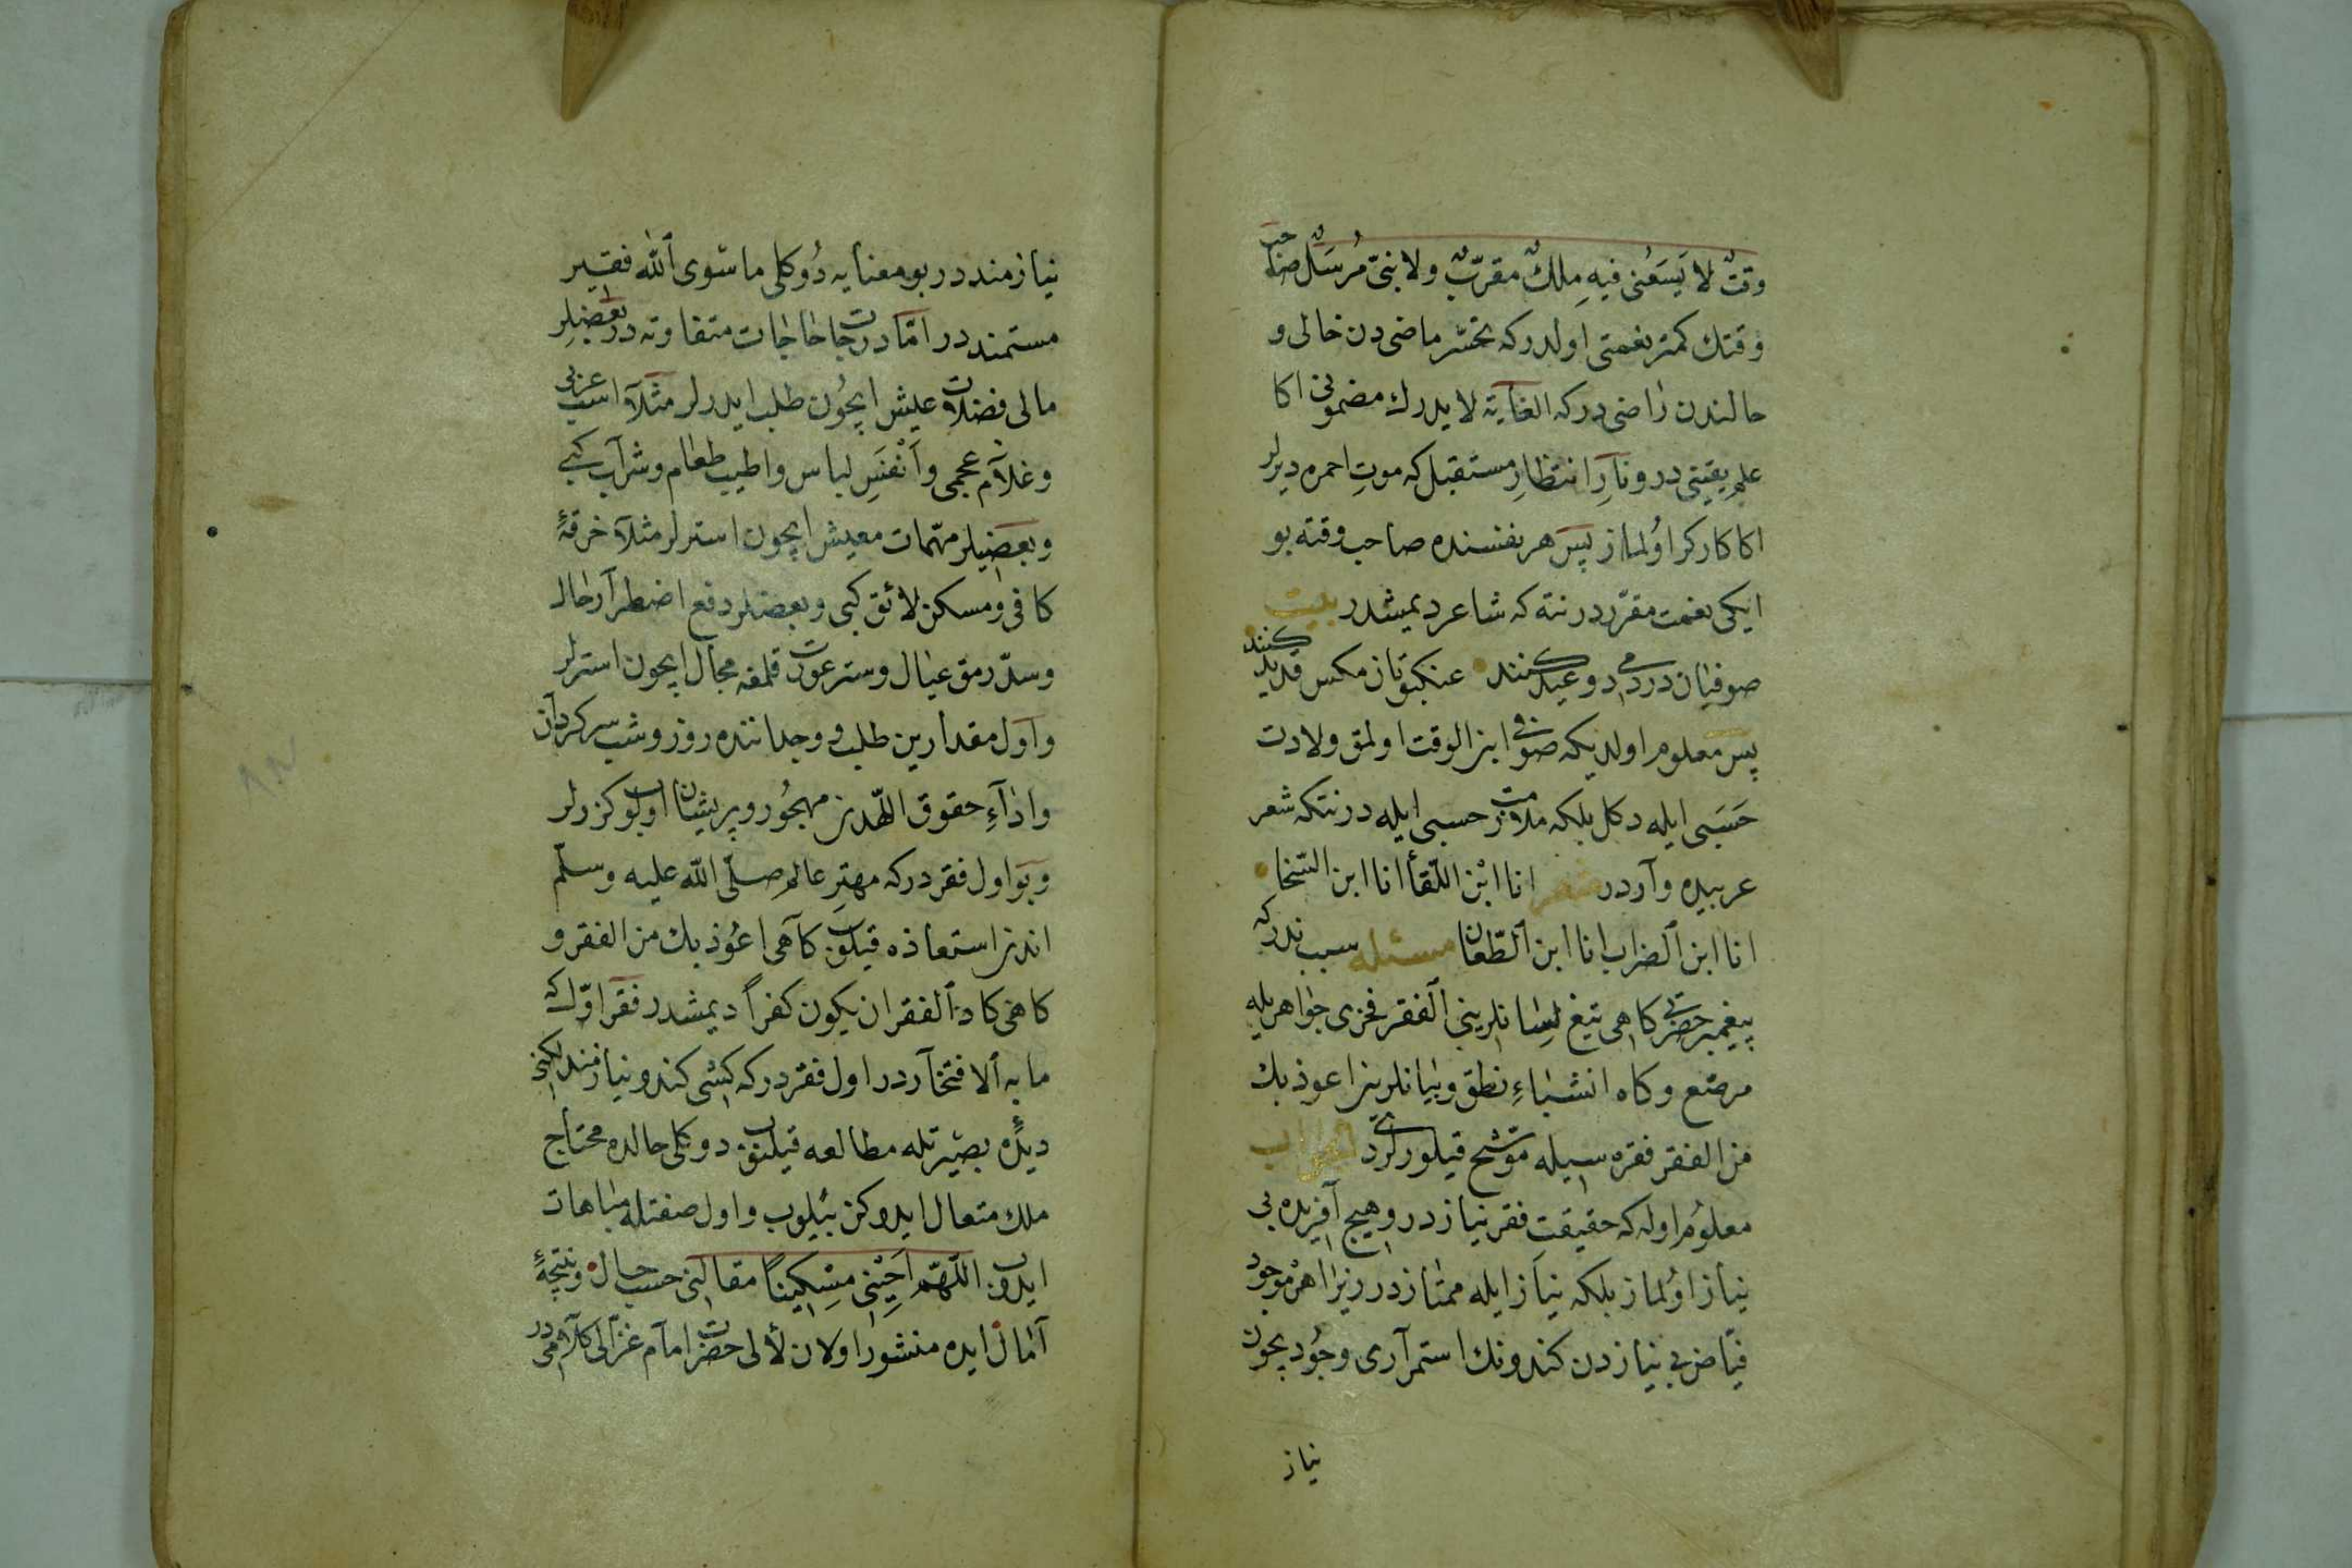 وقتٌ لا يَسَعُنى فيهِ ملكٌ مقرّبٌ ولا نبىّ مُرسَلٌ صاحب
وقتك كمتر نعمتى اولدركه تحسّر ماضى دن خالى و
حالندن راضى دركه الغآية لا يدرك مضمونى اكا
علم يقينى در و نارِ انتظارِ مستقبل كه موتِ احمره ديرلر
اكا كاركر اوُلماز پس هر نفسنده صاحب وقته بو
ايكى نعمت مقرّر در نته كه شاعر ديمشدر بيت
صوفيان دردمى دو عيد كنند عنكبوتان مكس قديد كنند
پس معلوم اولديكه صوفى ابن الوقت اولمق ولادت
حَسَبى ايله دكل بلكه ملازمت حسبى ايله در نتكه شعر
عربيده وآرد در شعر انا ابْن اللّقأ انا ابن السّخا
انا ابن ٱلضراب انا ابن ٱلطّعان مسئله سبب ندركه
پيغمبر حضرتى كاهى تيغ لسانلرينى ٱلفقر فخرى جواهريله
مرصّع و كاه انشاءِ نطق و بيانلرين اعوذ بك
من الفقر فقره سيله موشّح قيلورلردى الجواب
معلوُم اوله كه حقيقتِ فقر نياز در و هيچ آفريده بى
نياز اوُلماز بلكه نياز ايله ممتاز در زيرا هر موجود
فيّاض بى نيازدن كندونك استمرآرى وجُود يچون
نياز
نيازمند در بو معنايه دُوكلى ما سوى ٱلله فقير
مستمند در امّا درجات حاجات متفاوته در بعضيلر
مالى فضلات عيش ايچُون طلب ايدرلر مثلآ اسب عربى
و غلآم عجمى و اَنْفَسِ لباس و اطيب طعام و شرآب كبى
و بعضيلر مهمّات معيش ايچون استرلر مثلآ خرقهٔ
كافى و مسكن لائق كبى و بعضلر دفع اضطرآر حال
و سدّ رمق عيال و ستر عورت قلمغه مجآل ايچون استرلر
و اوَل مقدارين طلب و وجداننده روز و شب سركردآن
و ادٰآءِ حقوق اللّهدن مهجُور و پريشان اولوب كزرلر
و بو اول فقر دركه مهترِ عالم صلّى اللّه عليه وسلّم
اندن استعاذه قيلوب كآهى اعُوذ بك من الفقر و
كاهى كاد ٱلفقر ان يكون كفراً ديمشدر فقر اوّل كه
ما به ٱلافتخآر در اول فقر دركه كشى كندو نيازمندلكنى
ديدهٔ بصيرتله مطالعه قيلوب دوكلى حالده محتاج
ملك متعال ايدوكن بيلوب و اول صفتله مباهات
ايدوب اللّهمّ اَحْيِنى مِسْكيناً مقالنى حسب حال و نتيجهٔ
آمال ايده منشور اولان لألى حضرت امآم غزّالى كلآمى در